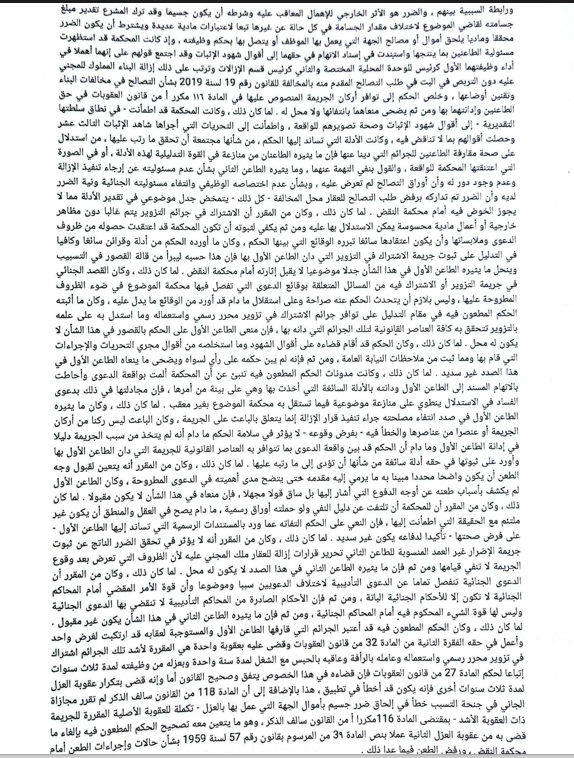 ورابطة السببية بينهم ، والضرر هو الأثر الخارجي للإهمال المعاقب عليه وشرطه أن يكون جسيما وقد ترك المشرع تقدير مبلغ
جسامته لقاضي الموضوع لاختلاف مقدار الجسامة في كل حالة عن غيرها تبعا لاعتبارات مادية عديدة ويشترط أن يكون الضرر
محققا وماديا يلحق أموال أو مصالح الجهة التي يعمل بها الموظف أو يتصل بها بحكم وظيفته ، وإذ كانت المحكمة قد استظهرت
مسئولية الطاعنين بما ينتجها واستندت في إسناد الاتهام في حقهما إلى أقوال شهود الإثبات وقد اجتمع قولهم على إنهما أهملا في
أداء وظيفتهما الأول كرئيس للوحدة المحلية المختصة والثاني كرئيس قسم الإزالات وترتب على ذلك إزالة البناء المملوك للمجني
عليه دون التريص في البت في طلب التصالح المقدم منه بالمخالفة للقانون رقم 19 لسنة 2019 بشأن التصالح في مخالفات البناء
وتقنين أوضاعها ، وخلص الحكم إلى توافر أركان الجريمة المنصوص عليها في المادة ١١٦ مكرر أ من قانون العقوبات في حق
الطاعنين وإدانتهما بها ومن ثم يضحى منعاهما بانتفائها ولا محل له . لما كان ذلك ، وكانت المحكمة قد اطمأنت - في نطاق سلطتها
التقديرية - إلى أقوال شهود الإثبات وصحة تصويرهم للواقعة ، واطمأنت إلى التحريات التي أجراها شاهد الإثبات الثالث عشر
وحصلت أقوالهم بما لا تناقض فيه ، وكانت الأدلة التي تساند إليها الحكم ، من شأنها مجتمعة أن تحقق ما رتب عليها ، من استدلال
على صحة مقارفة الطاعنين للجرائم التي دينا عنها فإن ما يثيره الطاعنان من منازعة في القوة التدليلية لهذه الأدلة ، أو في الصورة
التي اعتنقتها المحكمة للواقعة ، والقول بنفي التهمة عنهما ، وما يثيره الطاعن الثاني بشأن عدم مسئوليته عن إرجاء تنفيذ الإزالة
وعدم وجود دور له وأن أوراق التصالح لم تعرض عليه ، وبشأن عدم اختصاصه الوظيفي وانتفاء مسئوليته الجنائية ونية الضرر
لديه وأن الضرر تم تداركه برفض طلب التصالح للعقار محل المخالفة - كل ذلك - يتمخض جدل موضوعي في تقدير الأدلة مما لا
يجوز الخوض فيه أمام محكمة النقض . لما كان ذلك ، وكان من المقرر أن الاشتراك في جرائم التزوير يتم غالبا دون مظاهر
خارجية أو أعمال مادية محسوسة يمكن الاستدلال بها عليه ومن ثم يكفي لثبوته أن تكون المحكمة قد اعتقدت حصوله من ظروف
الدعوى وملابساتها وأن يكون اعتقادها سائغا تبرره الوقائع التي بينها الحكم ، وكان ما أورده الحكم من أدلة وقرائن سائغا وكافيا
في التدليل على ثبوت جريمة الاشتراك في التزوير التي دان الطاعن الأول بها فإن هذا حسبه ليبرأ من قالة القصور في التسبيب
وينحل ما يثيره الطاعن الأول في هذا الشأن جدلا موضوعيا لا يقبل إثارته أمام محكمة النقض . لما كان ذلك ، وكان القصد الجنائي
في جريمة التزوير أو الاشتراك فيه من المسائل المتعلقة بوقائع الدعوى التي تفصل فيها محكمة الموضوع في ضوء الظروف
المطروحة عليها ، وليس بلازم أن يتحدث الحكم عنه صراحة وعلى استقلال ما دام قد أورد من الوقائع ما يدل عليه ، وكان ما أثبته
الحكم المطعون فيه في مقام التدليل على توافر جرائم الاشتراك في تزوير محرر رسمي واستعماله وما استدل به على علمه
بالتزوير تتحقق به كافة العناصر القانونية لتلك الجرائم التي دانه بها ، فإن منعى الطاعن الأول على الحكم بالقصور في هذا الشأن لا
يكون له محل . لما كان ذلك ، وكان الحكم قد أقام قضاءه على أقوال الشهود وما استخلصه من أقوال مجري التحريات والإجراءات
التي قام بها ومما ثبت من ملاحظات النيابة العامة ، ومن ثم فإنه لم يبن حكمه على رأي لسواه ويضحى ما ينعاه الطاعن الأول في
هذا الصدد غير سديد . لما كان ذلك ، وكانت مدونات الحكم المطعون فيه تنبئ عن أن المحكمة ألمت بواقعة الدعوى وأحاطت
بالاتهام المسند إلى الطاعن الأول ودانته بالأدلة السائغة التي أخذت بها وهي على بينة من أمرها ، فإن مجادلتها في ذلك بدعوى
الفساد في الاستدلال ينطوي على منازعة موضوعية فيما تستقل به محكمة الموضوع بغير معقب . لما كان ذلك ، وكان ما يثيره
الطاعن الأول في صدد انتفاء مصلحته جراء تنفيذ قرار الإزالة إنما يتعلق بالباعث على الجريمة ، وكان الباعث ليس ركنا من أركان
الجريمة أو عنصرا من عناصرها والخطأ فيه - بفرض وقوعه - لا يؤثر في سلامة الحكم ما دام أنه لم يتخذ من سبب الجريمة دليلا
في إدانة الطاعن الأول وما دام أن الحكم قد بين واقعة الدعوى بما تتوافر به العناصر القانونية للجريمة التي دان الطاعن الأول بها
وأورد على ثبوتها في حقه أدلة سائغة من شأنها أن تؤدى إلى ما رتبه عليها . لما كان ذلك ، وكان من المقرر أنه يتعين لقبول وجه
الطعن أن يكون واضحا محددا مبينا به ما يرمي إليه مقدمه حتى يتضح مدى أهميته في الدعوى المطروحة ، وكان الطاعن الأول
لم يكشف بأسباب طعنه عن أوجه الدفوع التي أشار إليها بل ساق قولا مجهلا ، فإن منعاه في هذا الشأن لا يكون مقبولا . لما كان
ذلك ، وكان من المقرر أن للمحكمة أن تلتفت عن دليل النفي ولو حملته أوراق رسمية ، ما دام يصح في العقل والمنطق أن يكون غير
ملتئم مع الحقيقة التي اطمأنت إليها ، فإن النعي على الحكم التفاته عما ورد بالمستندات الرسمية التي تساند إليها الطاعن الأول -
على فرض صحتها - تأكيدا لدفاعه يكون غير سديد . لما كان ذلك ، وكان من المقرر أنه لا يؤثر في تحقق الضرر الناتج عن ثبوت
جريمة الإضرار غير العمد المنسوبة للطاعن الثاني تحرير قرارات إزالة للعقار ملك المجني عليه لأن الظروف التي تعرض بعد وقوع
الجريمة لا تنفي قيامها ومن ثم فإن ما يثيره الطاعن الثاني في هذا الصدد لا يكون له محل . لما كان ذلك ، وكان من المقرر أن
الدعوى الجنائية تنفصل تماما عن الدعوى التأديبية لاختلاف الدعويين سببا وموضوعا وأن قوة الأمر المقضي أمام المحاكم
الجنائية لا تكون إلا للأحكام الجنائية الباتة ، ومن ثم فإن الأحكام الصادرة من المحاكم التأديبية لا تنقضي بها الدعوى الجنائية
وليس لها قوة الشيء المحكوم فيه أمام المحاكم الجنائية ، ومن ثم فإن ما يثيره الطاعن الثاني في هذا الشأن يكون غير مقبول .
لما كان ذلك ، وكان الحكم المطعون فيه قد أعتبر الجرائم التي قارفها الطاعن الأول والمستوجبة لعقابه قد ارتكبت لغرض واحد
وأعمل في حقه الفقرة الثانية من المادة 32 من قانون العقوبات وقضى عليه بعقوبة واحدة هي المقررة لأشد تلك الجرائم اشتراك
في تزوير محرر رسمي واستعماله وعامله بالرأفة وعاقبه بالحبس مع الشغل لمدة سنة واحدة وبعزله من وظيفته لمدة ثلاث سنوات
إتباعا لحكم المادة 27 من قانون العقوبات فإن قضاءه في هذا الخصوص يتفق وصحيح القانون أما وإنه قضى بتكرار عقوبة العزل
لمدة ثلاث سنوات أخرى فإنه يكون قد أخطأ في تطبيق ، هذا بالإضافة إلى أن المادة 118 من القانون سالف الذكر لم تقرر مجازاة
الجاني في جنحة التسبب خطأ في إلحاق ضرر جسيم بأموال الجهة التي عمل بها بالعزل - تكملة للعقوبة الأصلية المقررة للجريمة
ذات العقوبة الأشد - بمقتضى المادة 116مكررا أ من القانون سالف الذكر ، وهو ما يتعين معه تصحيح الحكم المطعون فيه بإلغاء ما
قضى به من عقوبة العزل الثانية عملا بنص المادة ٣٩ من المرسوم بقانون رقم 57 لسنة 1959 بشأن حالات وإجراءات الطعن أمام
محكمة النقض ، ورفض الطعن فيما عدا ذلك .